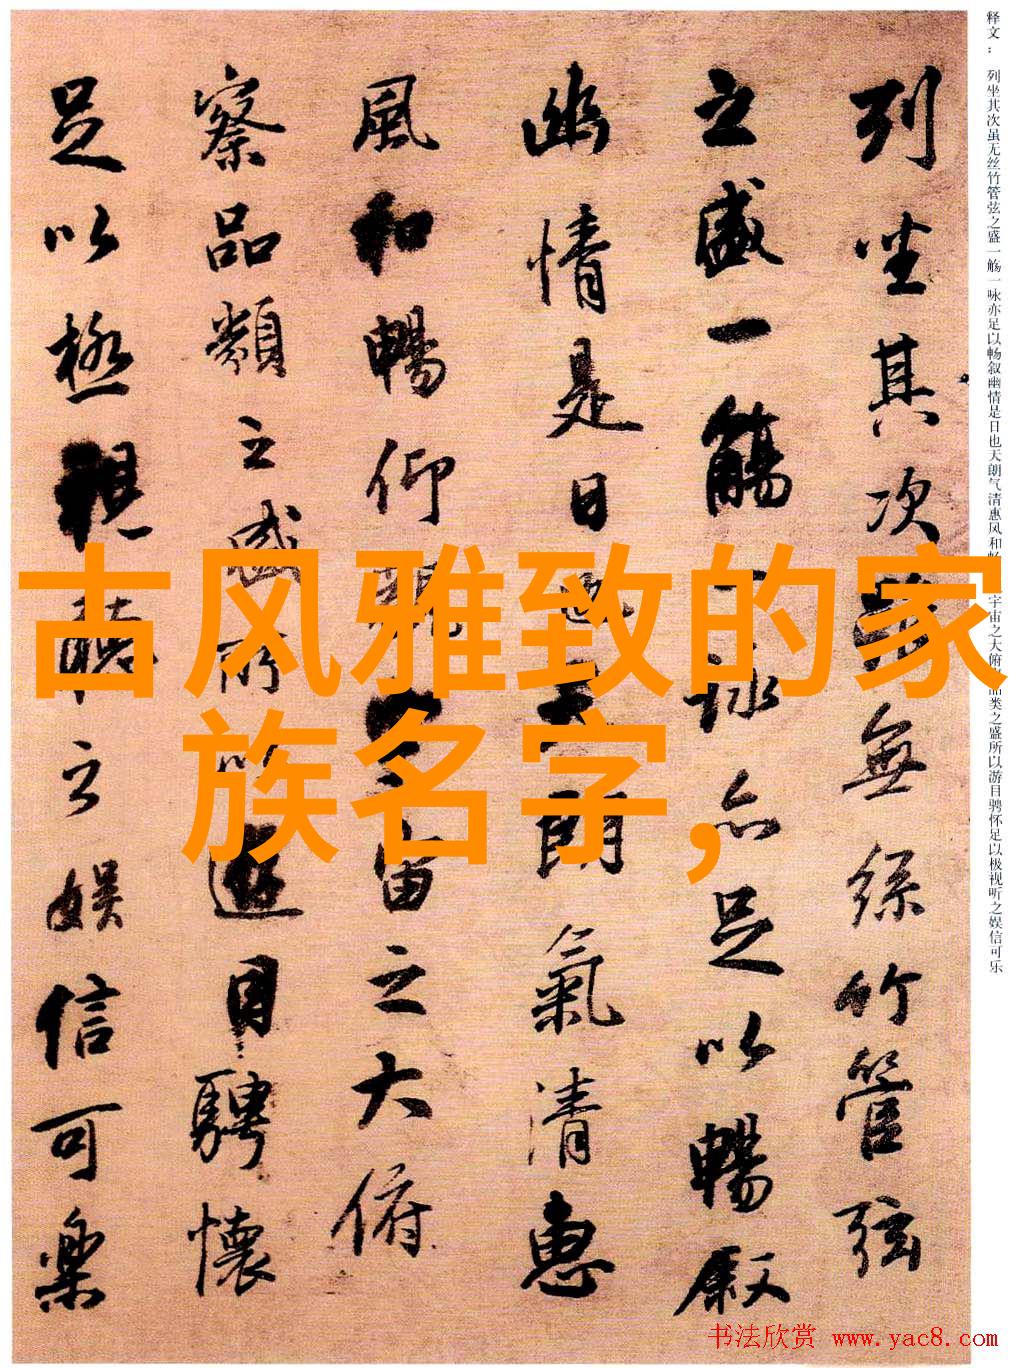 释文： 列坐其次虽无丝竹管弦之盛一觞一咏亦足以畅叙幽情是日也天朗气清惠风和 宇宙之大俯 品类之盛所以游目骋怀足以极视听之娱信可乐
列坐其次無絲竹管弦
之盛一觴一詠亦足以暢叙
幽情是日也天朗氣清惠
風和暢仰觀宙之大俯
察品類之盛所以遊目騁懷
足以極視聽之娛信可樂
古风雅致的家
族名字，
书法欣赏 www.yac8.com